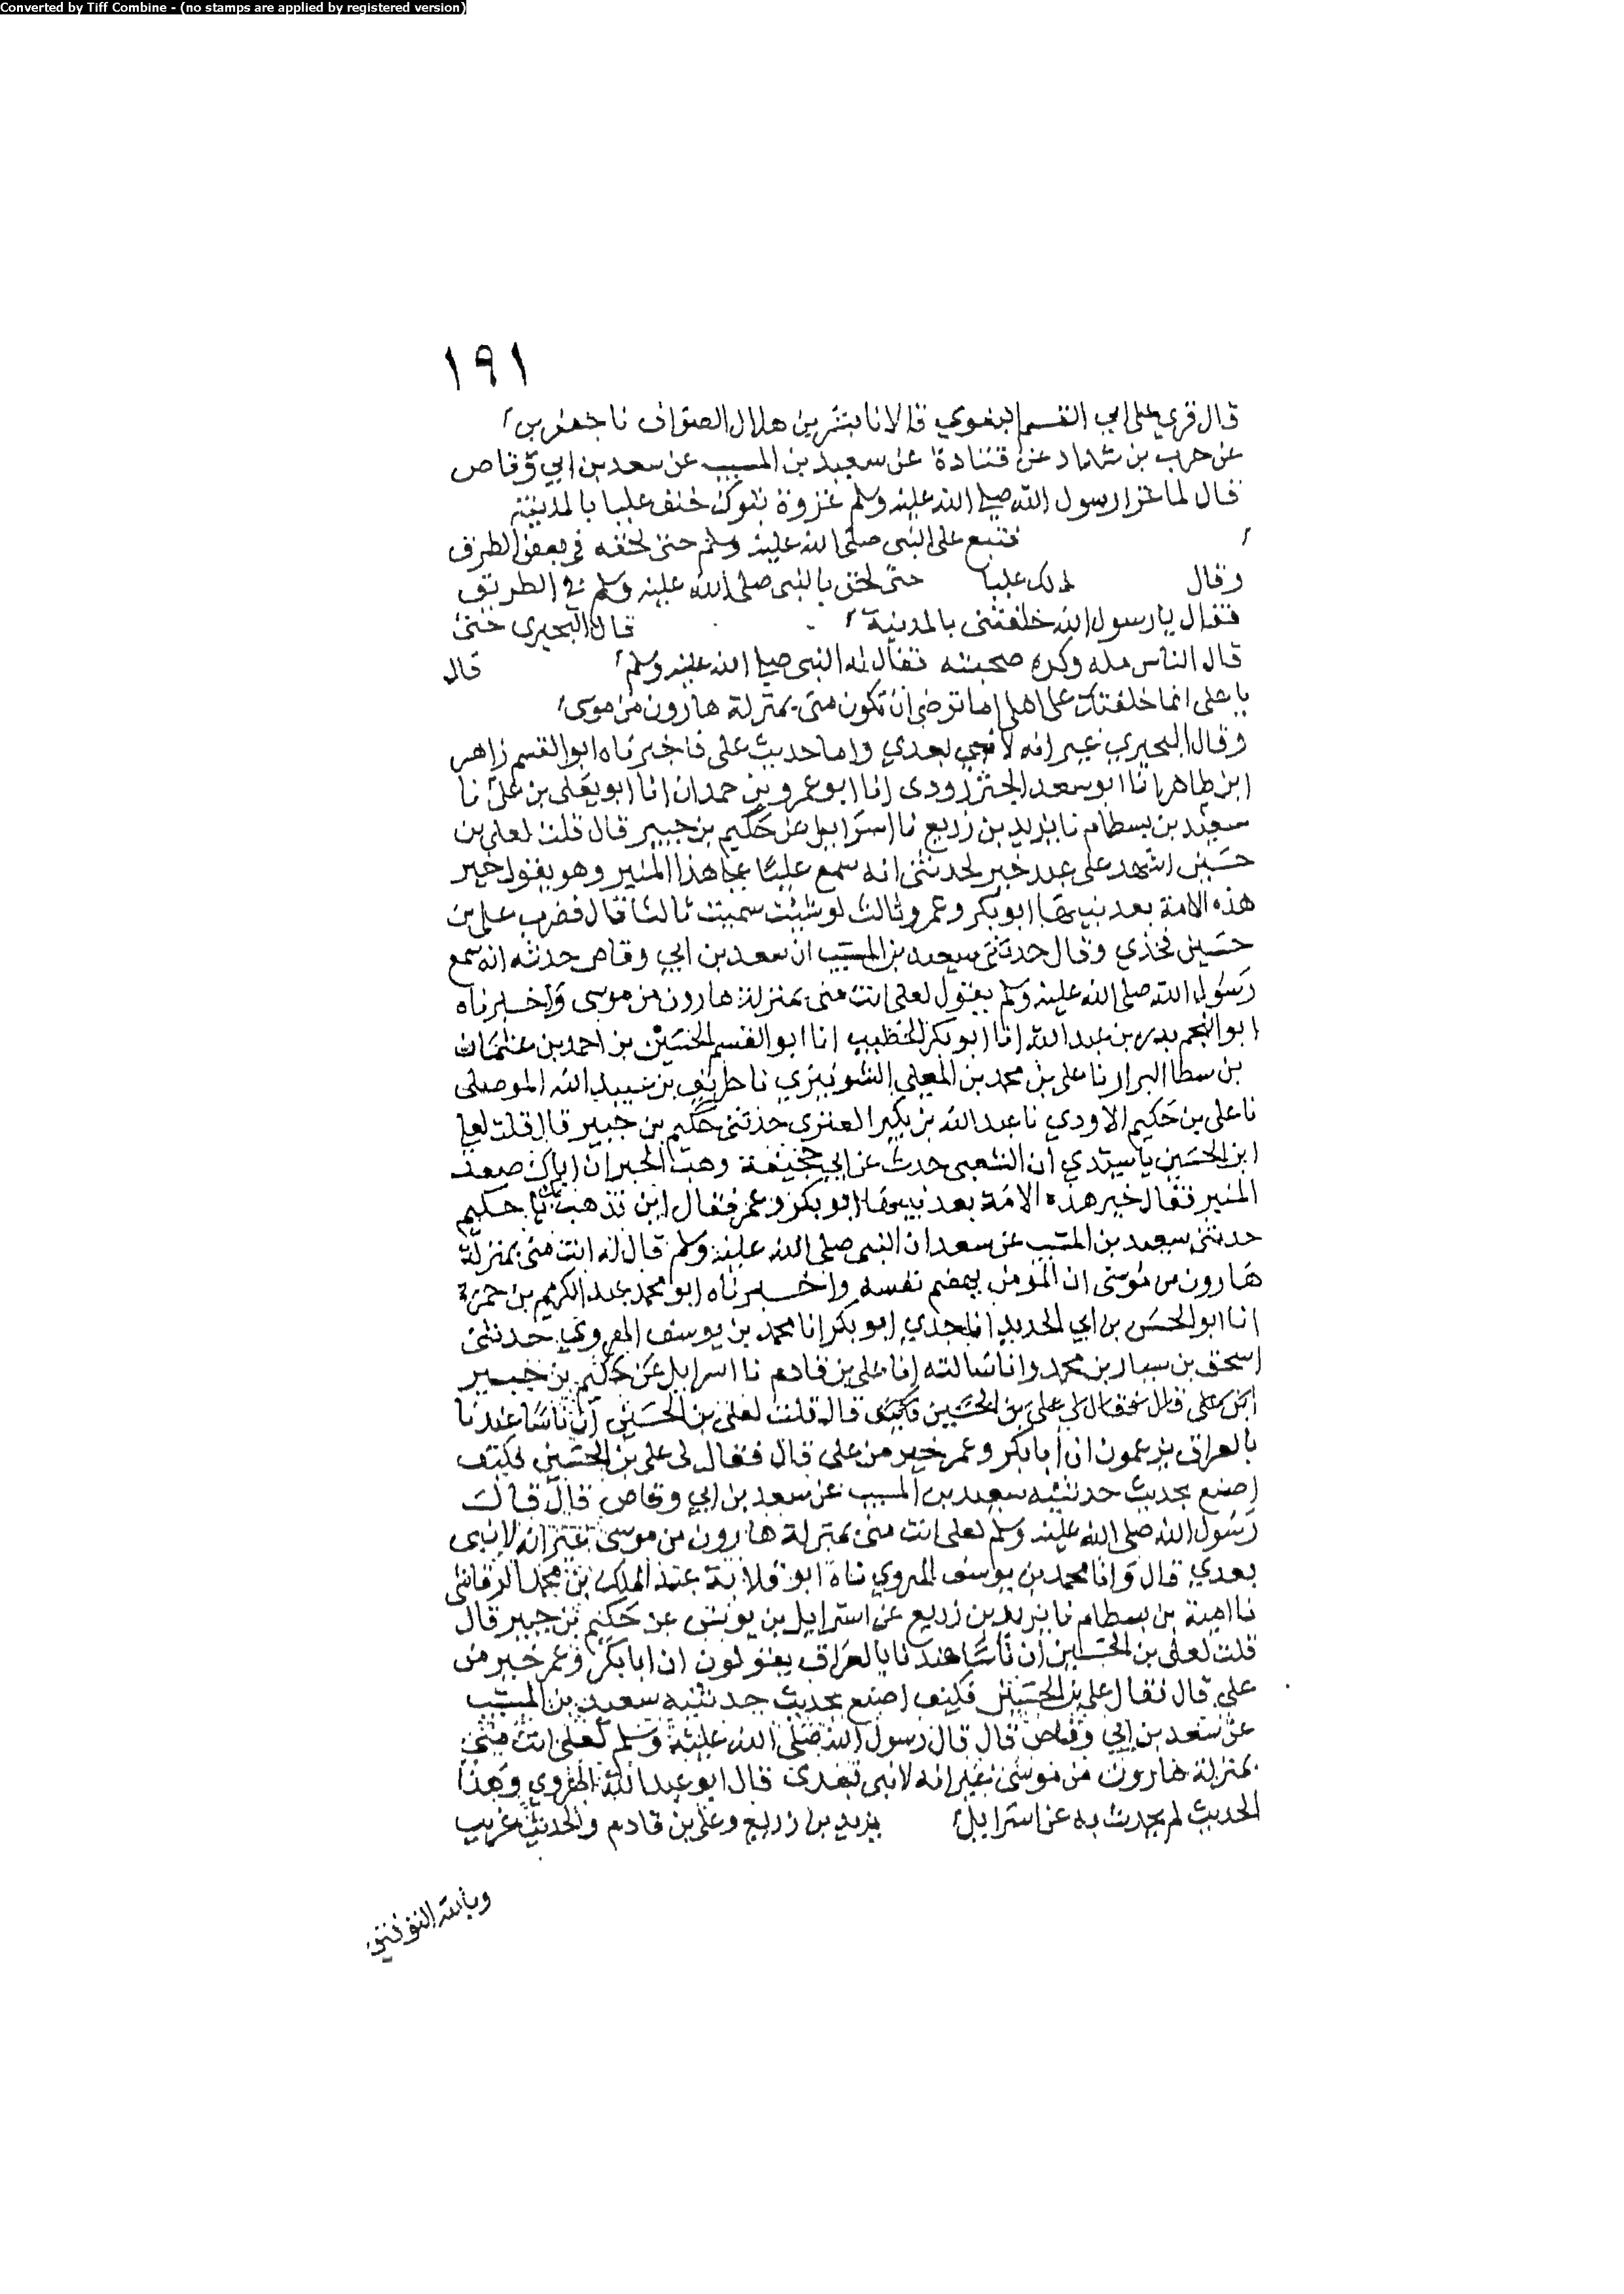 Converted by Tiff Combine - (no stamps are applied by registered version)
١٩١
قال قرى على ابي القسم البغوي قالا نا بشر بن هلال الصواف نا جعفر بن
عن حرب بن شداد عن قتادة عن سعيد بن المسيب عن سعد بن ابي وقاص
قال لما غزا رسول الله صلى الله عليه وسلم غزوة تبوك خلف عليا بالمدينة
فتبع على النبى صلى الله عليه وسلم حتى لحقه في بعض الطرق
وقال عليا حتى لحق بالنبى صلى الله عليه وسلم في الطريق
فقال يا رسول الله خلفتنى بالمدينة قال البحيرى حتى
قال الناس مله وكره صحبته فقال له النبى صلى الله عليه وسلم قال
يا على انما خلفتك على اهلى اما ترضى ان تكون منى بمنزلة هارون من موسى
وقال البحيري غير انه لا نبي بعدي واما حديث على فاخبرناه ابو القسم زاهر
ابن طاهر انا ابو سعد الجنزرودى انا ابو عمرو بن حمدان انا ابو يعلى بن على نا
سعيد بن بسطام نا يزيد بن زريع نا اسرايل عن حكيم بن جبير قال قلت لعلى بن
حسين اشهد على عبد خير لحدثنى انه سمع عليا على هذا المنبر وهو يقول خير
هذه الامة بعد نبيها ابو بكر وعمر وثالث لو شئت سميت ثالثا قال فضرب على بن
حسين فخذي وقال حدثنى سعيد بن المسيب ان سعد بن ابي وقاص حدثه انه سمع
رسول الله صلى الله عليه وسلم يقول لعلى انت منى بمنزلة هارون من موسى واخبرناه
ابو النجم بدر بن عبد الله انا ابو بكر الخطيب انا ابو القسم الحسين بن احمد بن عثمان
بن سطا البزار نا على بن محمد بن المعلى الشونيزي نا طريف بن عبيد الله الموصلى
نا على بن حكيم الاودي نا عبد الله بن بكير العنزى حدثنى حكيم بن جبير قال قلت لعلى
ابن الحسين يا سيدي ان الشعبى حدث عن ابي جحيفة وهب الخير ان اباك صعد
المنبر فقال خير هذه الامة بعد نبيها ابو بكر وعمر فقال اين تذهب يا حكيم
حدثنى سعيد بن المسيب عن سعد ان النبى صلى الله عليه وسلم قال له انت منى بمنزلة
هارون من موسى ان المومن يهضم نفسه واخبرناه ابو محمد عبد الكريم بن حمزة
انا ابو الحسن بن ابي الحديد انا جدي ابو بكر انا محمد بن يوسف الهروي حدثنى
اسحق بن سيار بن محمد وانا سالته انا على بن قادم نا اسرايل عن حكيم بن جبير
على قال فقال لى على بن الحسين فكيف قال قلت لعلى بن الحسين ان ناسا عندنا
بالعراق يزعمون ان ابا بكر وعمر خير من على قال فقال لى على بن الحسين فكيف
اصنع بحديث حدثنيه سعيد بن المسيب عن سعد بن ابي وقاص قال قال
رسول الله صلى الله عليه وسلم لعلى انت منى بمنزلة هارون من موسى غير انه لا نبى
بعدي قال وانا محمد بن يوسف الهروي ناه ابو قلابة عبد الملك بن محمد الرقاشى
نا امية بن بسطام نا يزيد بن زريع عن اسرايل بن يونس عن حكيم بن جبير قال
قلت لعلى بن الحسين ان ناسا عندنا بالعراق يقولون ان ابا بكر وعمر خير من
على قال فقال على بن الحسين فكيف اصنع بحديث حدثنيه سعيد بن المسيب
عن سعد بن ابي وقاص قال قال رسول الله صلى الله عليه وسلم لعلى انت منى
بمنزلة هارون من موسى غير انه لا نبى بعدى قال ابو عبد الله الهروي وهذا
الحديث لم يحدث به عن اسرايل يزيد بن زريع وعلى بن قادم والحديث غريب
وبالله التوفيق